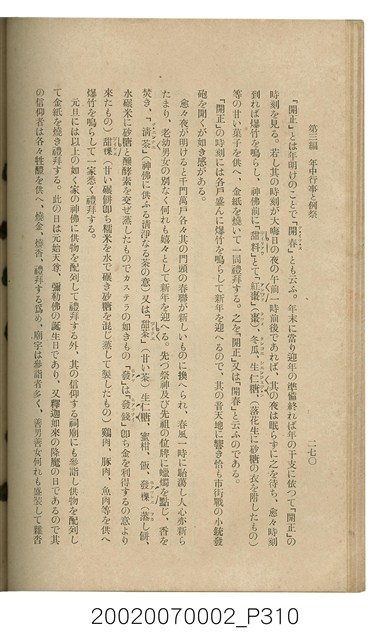 第三編 年中行事と例祭
二七〇
「開正」とは年明けのことで「開春」とも云ふ。年末に當り迎年の準備終れば年の干支に依つて「開正」の
時刻を見る。若し其の時刻が大晦日の夜の午前一時前後であれば、其の夜は眠らずに之を待ち、愈々時刻
到れば爆竹を鳴らし、神佛前に「甜料」とて「紅棗」（棗）、冬瓜、生仁糖、（落花生に砂糖の衣を附したもの）
等の甘い菓子を供へ、金紙を燒いて一同禮拜する。之を「開正」又は「開春」と云ふのである。
「開正」の時刻には各戶盛んに爆竹を鳴らして新年を迎へるので、其の音天地に響き恰も市街戰の小銃發
砲を聞くが如き感がある。
愈々夜が明けると千門萬戶各々其の門頭の春聯が新しいものに換へられ、春風一時に駘蕩し人心亦新ら
たまり、老幼男女の別なく何れも嬉々として新年を迎へる。先づ祭神及び先祖の位牌に蠟燭を點じ、香を
焚き、「淸茶」（神佛に供ふる淸淨なる茶の意）又は「甜茶」（甘い茶）生仁糖、蜜柑、飯、發粿（蒸し餅、
水碾米に砂糖と醱酵素を交ぜ蒸したものでカステラの如きもの「發」は「發錢」卽ち金を利得するの意より
來たもの）甜粿（甘い碾餅卽ち糯米を水で碾き砂糖を混じ蒸して製したもの）鷄肉、豚肉、魚肉等を供へ
爆竹を鳴らして一家悉く禮拜する。
元旦には以上の如く家の神佛に供物を配列して禮拜する外、其の信仰する祠廟にも參詣し供物を配列し
て金紙を燒き禮拜する。此の日は元始天尊、彌勒佛の誕生日であり、又釋迦如來の降魔の日であるので其
の信仰者は各々牲醴を供へ、燒金、燒香、禮拜する爲め、廟宇は參詣者多く、善男善女何れも盛裝して雜沓
20020070002_P310